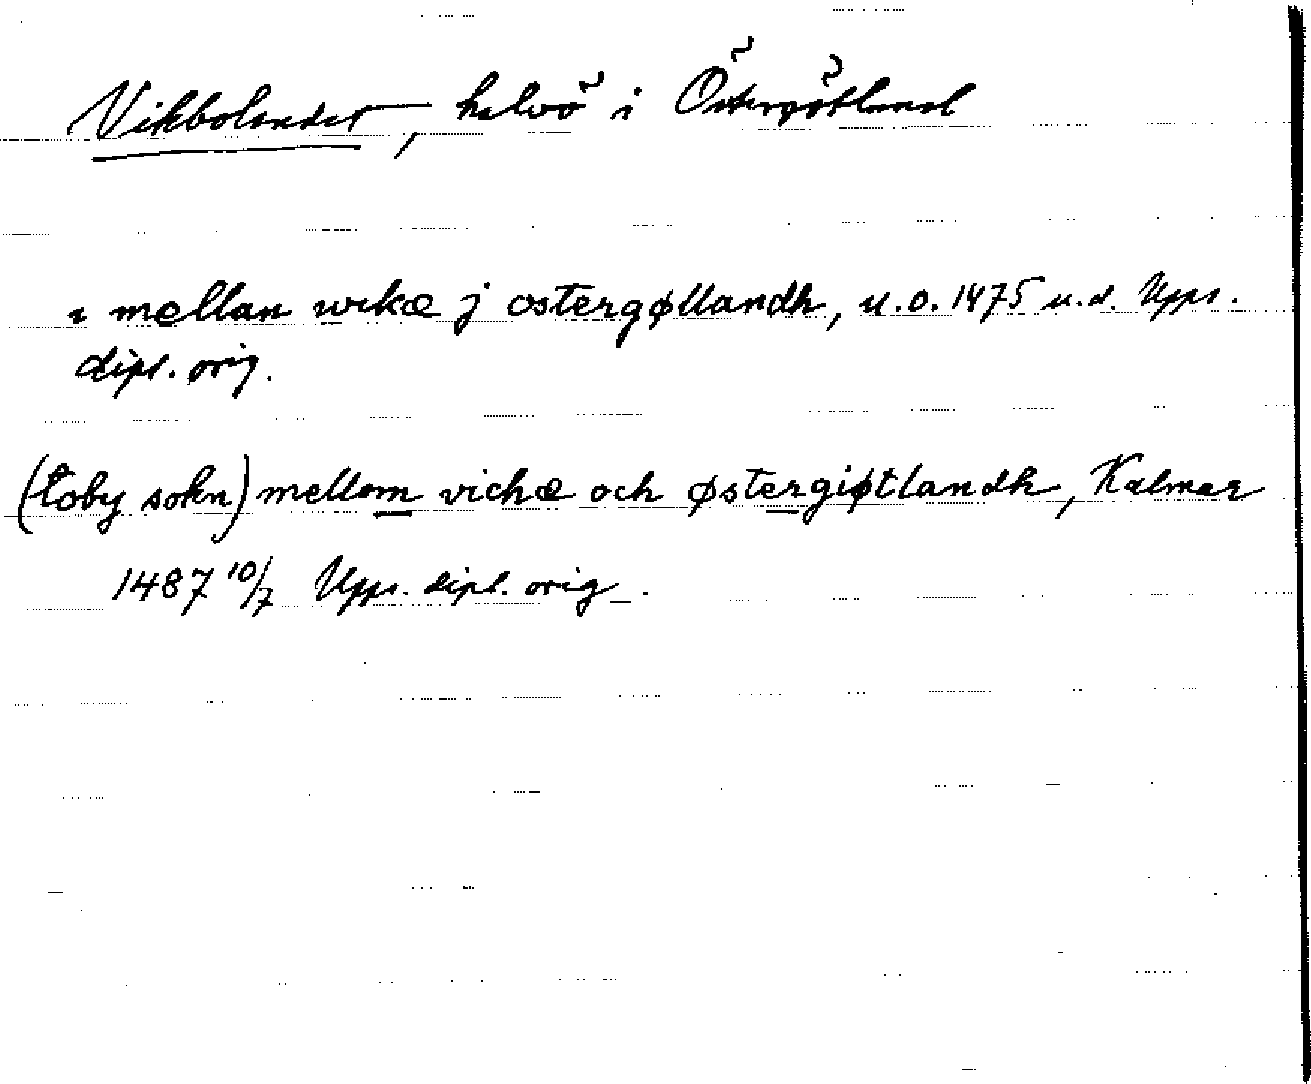 Vikbolandet, halvö i Östergötland
i mellan wikæ j ostergøtlandh, u.o. 1475 u.d. Upps.
dipl. orig.
(Toby sokn) mellom vichæ och østergiøtlandh, Kalmar
1487 10/7 Upps. dipl. orig.